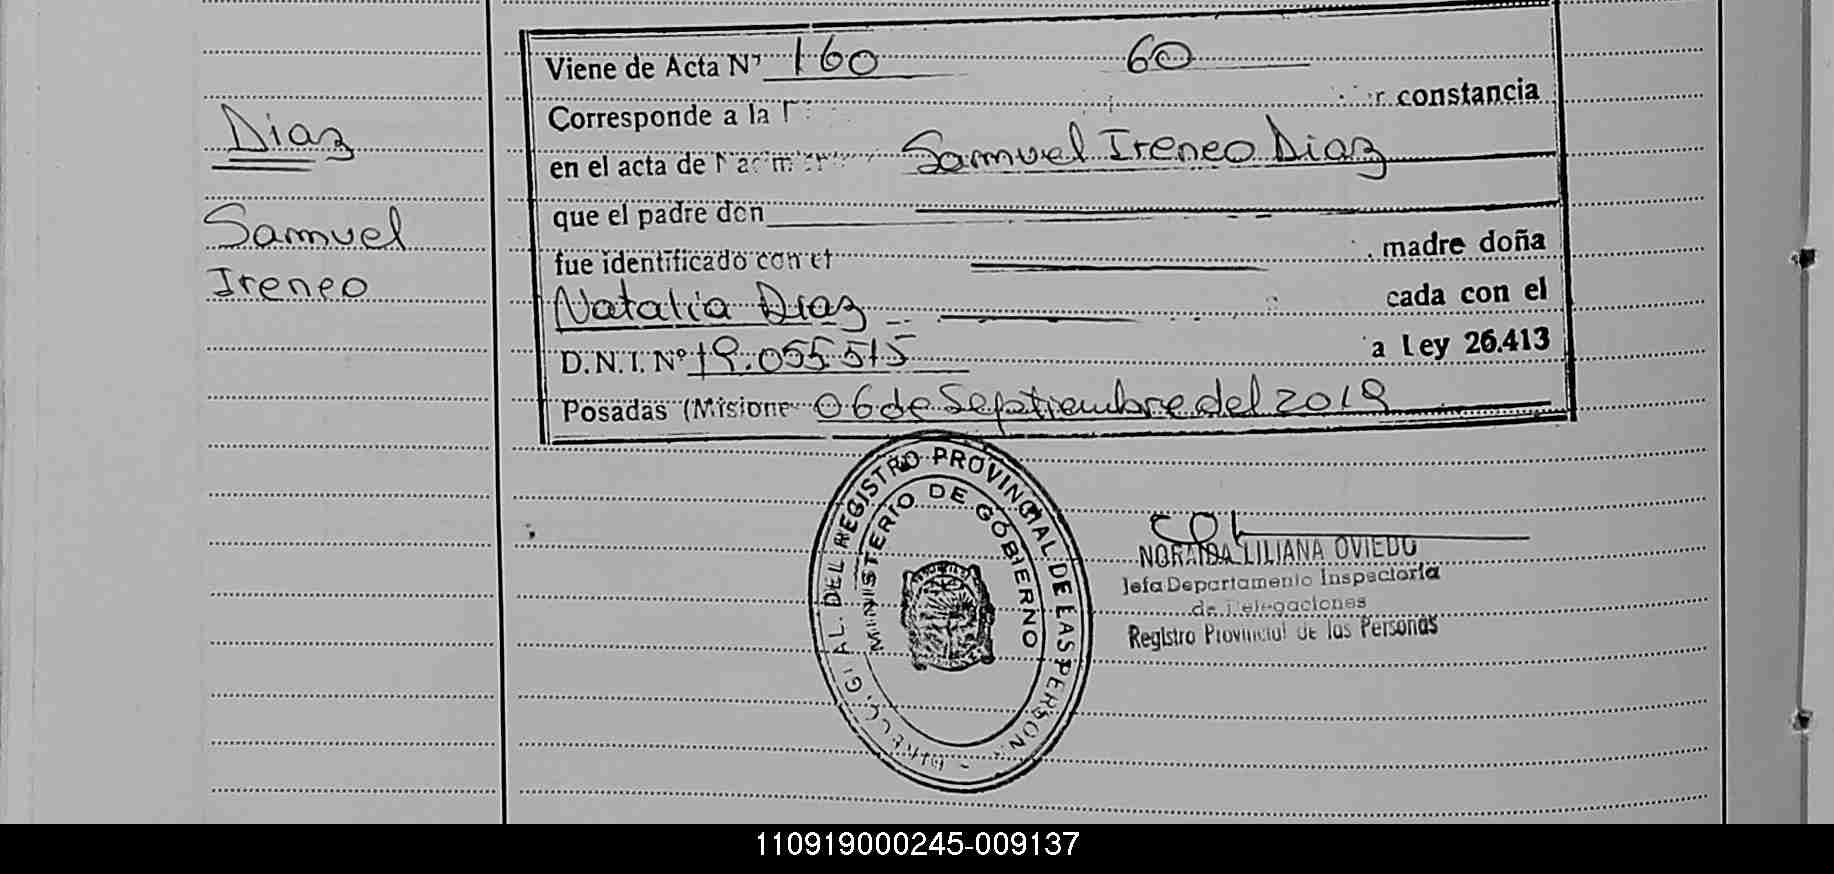 Diaz
Samuel
Ireneo
Viene de Acta Nº 160 60
Corresponde a la constancia
en el acta de Samuel Ireneo Diaz
que el padre don
fue identificado con el madre doña
Natalia Diaz cada con el
D.N.I. Nº 19.055.515 a Ley 26.413
Posadas (Misione 06 de Septiembre del 2019
DEL REGISTRO PROVINCIAL DE LAS PERSONAS
MINISTERIO DE GOBIERNO
NORAIDA LILIANA OVIEDO
Jefa Departamento Inspectoria
de Delegaciones
Registro Provincial de las Personas
110919000245-009137